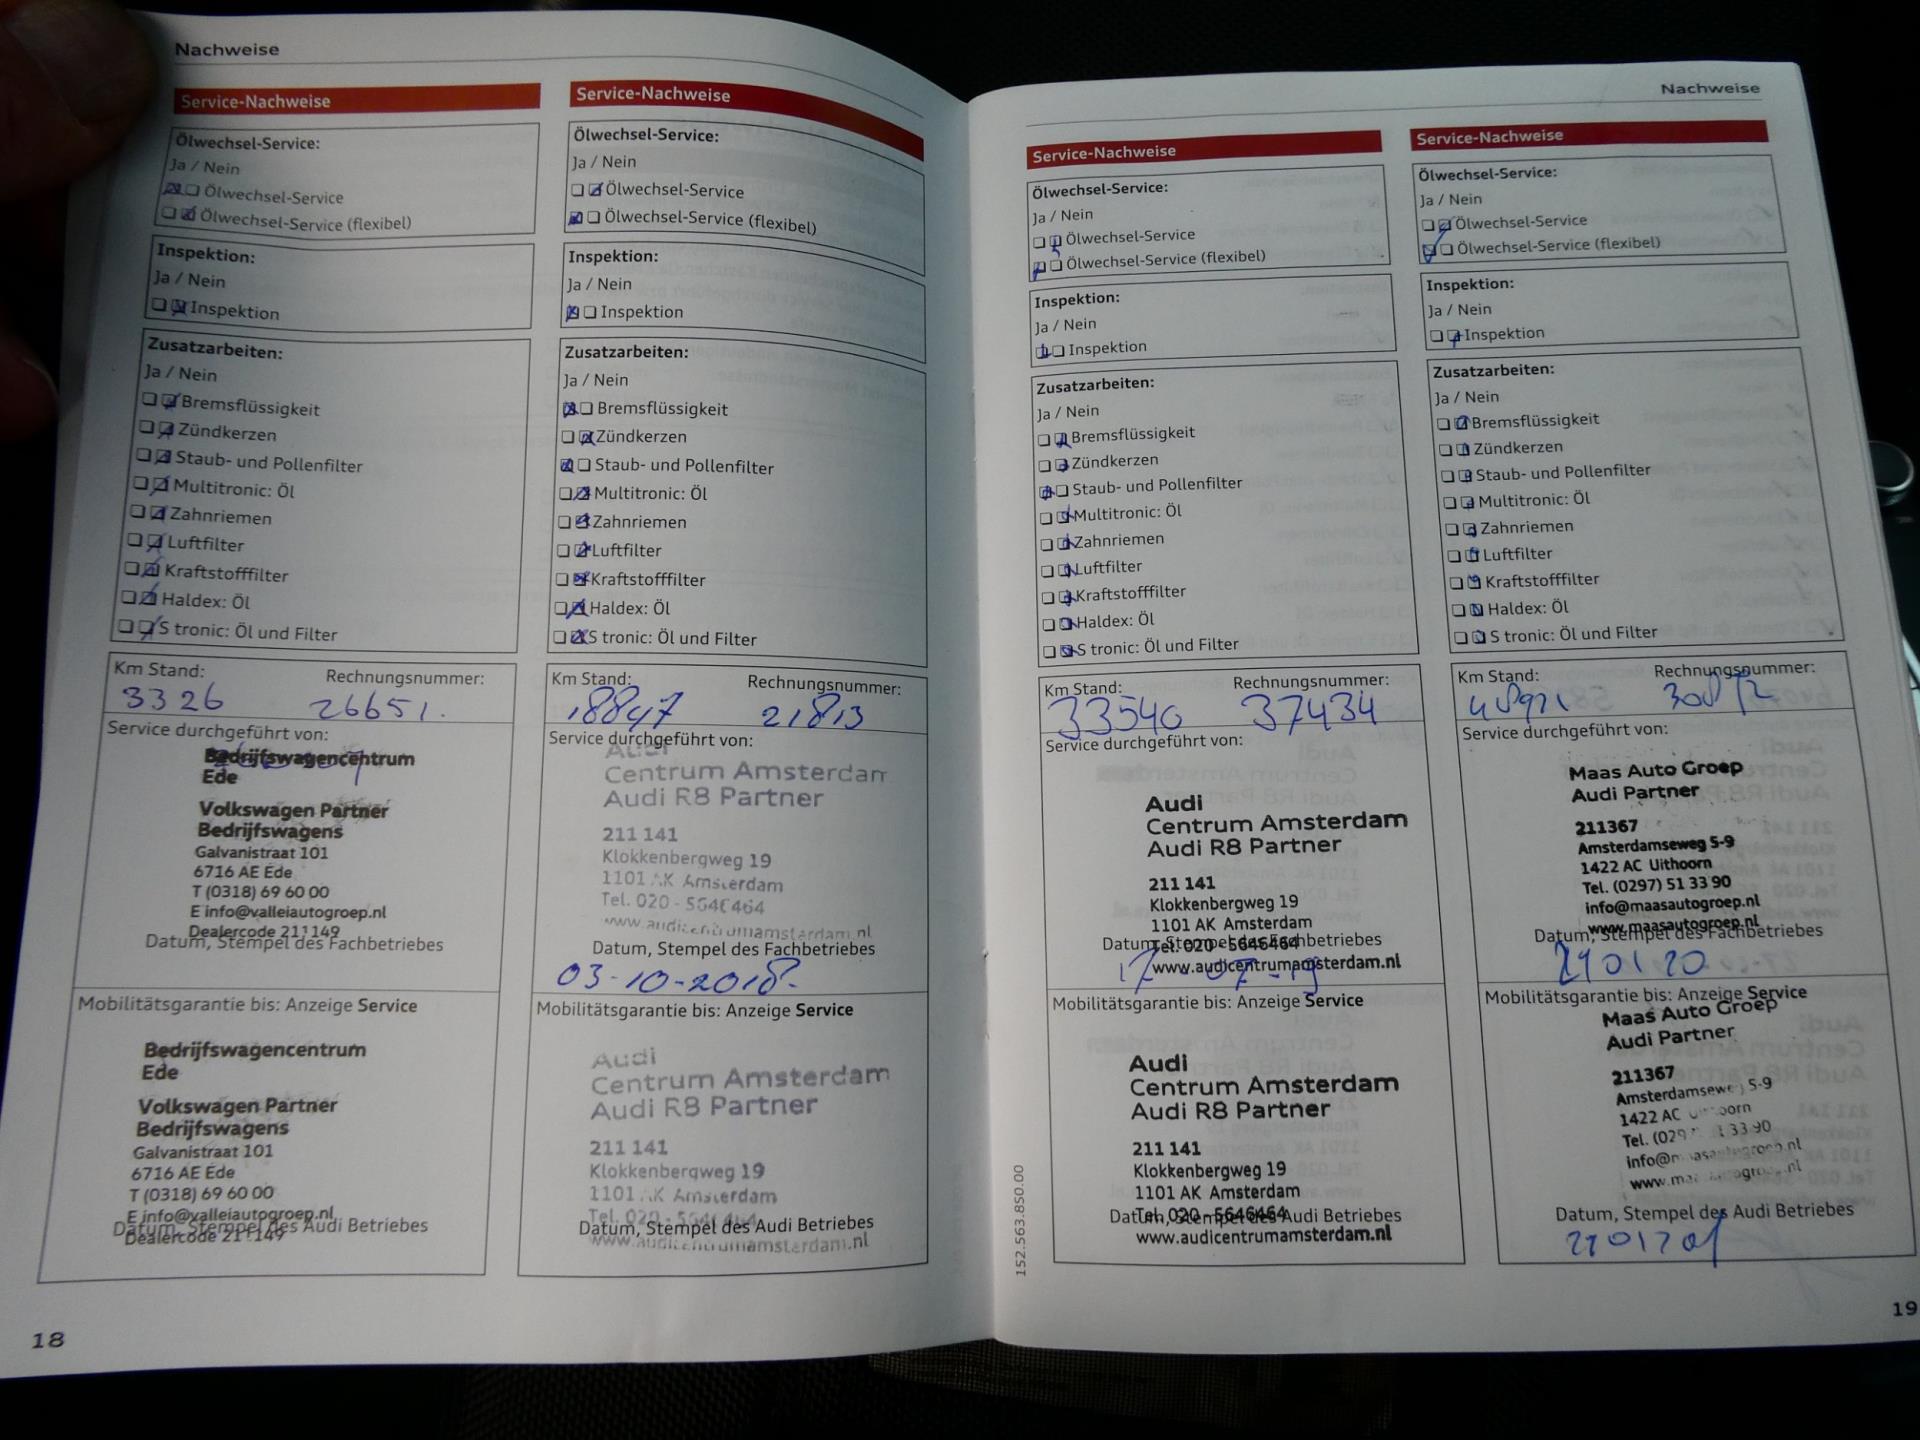 Nachweise
Service-Nachweise
Ölwechsel-Service:
Ja / Nein
Ölwechsel-Service
Ölwechsel-Service (flexibel)
Inspektion:
Ja / Nein
Inspektion
Zusatzarbeiten:
Ja / Nein
Bremsflüssigkeit
Zündkerzen
Staub- und Pollenfilter
Multitronic: Öl
Zahnriemen
Luftfilter
Kraftstofffilter
Haldex: Öl
S tronic: Öl und Filter
Km Stand: Rechnungsnummer:
3326 26651.
Service durchgeführt von:
Bedrijfswagencentrum
Ede
Volkswagen Partner
Bedrijfswagens
Galvanistraat 101
6716 AE Ede
T (0318) 69 60 00
E info@valleiautogroep.nl
Dealercode 211149
Datum, Stempel des Fachbetriebes
Mobilitätsgarantie bis: Anzeige Service
Bedrijfswagencentrum
Ede
Volkswagen Partner
Bedrijfswagens
Galvanistraat 101
6716 AE Ede
T (0318) 69 60 00
E info@valleiautogroep.nl
Datum, Stempel des Audi Betriebes
Dealercode 211149
18
Service-Nachweise
Ölwechsel-Service:
Ja / Nein
Ölwechsel-Service
Ölwechsel-Service (flexibel)
Inspektion:
Ja / Nein
Inspektion
Zusatzarbeiten:
Ja / Nein
Bremsflüssigkeit
Zündkerzen
Staub- und Pollenfilter
Multitronic: Öl
Zahnriemen
Luftfilter
Kraftstofffilter
Haldex: Öl
S tronic: Öl und Filter
Km Stand: Rechnungsnummer:
18847 21813
Service durchgeführt von:
Audi
Centrum Amsterdam
Audi R8 Partner
211 141
Klokkenbergweg 19
1101 AK Amsterdam
Tel. 020 - 5646464
www.audicentrumamsterdam.nl
Datum, Stempel des Fachbetriebes
03-10-2018-
Mobilitätsgarantie bis: Anzeige Service
Audi
Centrum Amsterdam
Audi R8 Partner
211 141
Klokkenbergweg 19
1101 AK Amsterdam
Tel. 020 - 5646464
Datum, Stempel des Audi Betriebes
www.audicentrumamsterdam.nl
Nachweise
Service-Nachweise
Ölwechsel-Service:
Ja / Nein
Ölwechsel-Service
Ölwechsel-Service (flexibel)
Inspektion:
Ja / Nein
Inspektion
Zusatzarbeiten:
Ja / Nein
Bremsflüssigkeit
Zündkerzen
Staub- und Pollenfilter
Multitronic: Öl
Zahnriemen
Luftfilter
Kraftstofffilter
Haldex: Öl
S tronic: Öl und Filter
Km Stand: Rechnungsnummer:
33540 37434
Service durchgeführt von:
Audi
Centrum Amsterdam
Audi R8 Partner
211 141
Klokkenbergweg 19
1101 AK Amsterdam
Datum, Stempel des Fachbetriebes
Tel. 020 - 5646464
www.audicentrumamsterdam.nl
17 - 07 - 19
Mobilitätsgarantie bis: Anzeige Service
Audi
Centrum Amsterdam
Audi R8 Partner
211 141
Klokkenbergweg 19
1101 AK Amsterdam
Datum, Stempel des Audi Betriebes
Tel. 020 - 5646464
www.audicentrumamsterdam.nl
152.563.850.00
Service-Nachweise
Ölwechsel-Service:
Ja / Nein
Ölwechsel-Service
Ölwechsel-Service (flexibel)
Inspektion:
Ja / Nein
Inspektion
Zusatzarbeiten:
Ja / Nein
Bremsflüssigkeit
Zündkerzen
Staub- und Pollenfilter
Multitronic: Öl
Zahnriemen
Luftfilter
Kraftstofffilter
Haldex: Öl
S tronic: Öl und Filter
Km Stand: Rechnungsnummer:
Service durchgeführt von:
Maas Auto Groep
Audi Partner
211367
Amsterdamseweg 5-9
1422 AC Uithoorn
Tel. (0297) 51 33 90
info@maasautogroep.nl
www.maasautogroep.nl
Datum, Stempel des Fachbetriebes
Mobilitätsgarantie bis: Anzeige Service
Maas Auto Groep
Audi Partner
211367
Amsterdamseweg 5-9
1422 AC
Datum, Stempel des Audi Betriebes
19